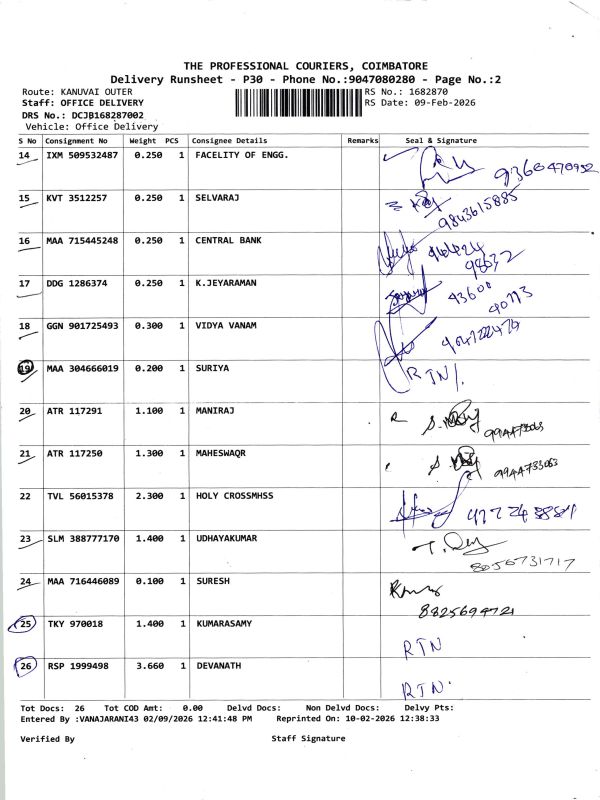 THE PROFESSIONAL COURIERS, COIMBATORE
Delivery Runsheet - P30 - Phone No.:9047080280 - Page No.:2
Route: KANUVAI OUTER RS No.: 1682870
Staff: OFFICE DELIVERY RS Date: 09-Feb-2026
DRS No.: DCJB168287002
Vehicle: Office Delivery
S No Consignment No Weight PCS Consignee Details Remarks Seal & Signature
14 IXM 509532487 0.250 1 FACELITY OF ENGG.
9360470952
15 KVT 3512257 0.250 1 SELVARAJ
9843615885
16 MAA 715445248 0.250 1 CENTRAL BANK
98632
17 DDG 1286374 0.250 1 K.JEYARAMAN
43600
40773
18 GGN 901725493 0.300 1 VIDYA VANAM
19 MAA 304666019 0.200 1 SURIYA
RTN/.
20 ATR 117291 1.100 1 MANIRAJ
21 ATR 117250 1.300 1 MAHESWAQR
9944733063
22 TVL 56015378 2.300 1 HOLY CROSSMHSS
23 SLM 388777170 1.400 1 UDHAYAKUMAR
8056731717
24 MAA 716446089 0.100 1 SURESH
8825694721
25 TKY 970018 1.400 1 KUMARASAMY
RTN
26 RSP 1999498 3.660 1 DEVANATH
RTN
Tot Docs: 26 Tot COD Amt: 0.00 Delvd Docs: Non Delvd Docs: Delvy Pts:
Entered By :VANAJARANI43 02/09/2026 12:41:48 PM Reprinted On: 10-02-2026 12:38:33
Verified By Staff Signature